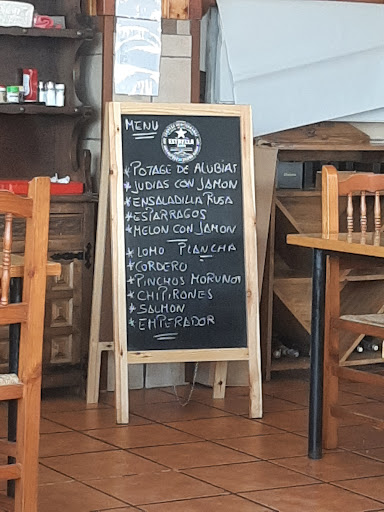 MENU
ESTRELLA
*POTAGE DE ALUBIAS
*JUDIAS CON JAMON
*ENSALADILLA RUSA
*ESPARRAGOS
*MELON CON JAMON
*LOMO PLANCHA
*CORDERO
*PINCHOS MORUNOS
*CHIPIRONES
*SALMON
*EMPERADOR